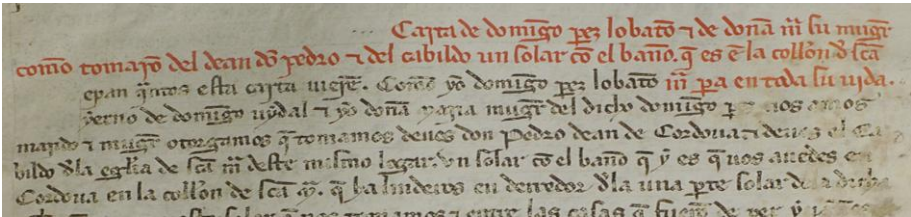 Carta de domingo perez lobato ⁊ de doña mͥ su mugr̃
como tomarõ del dean dõ pedro ⁊ del cabildo un solar cõ el baño. q̃ es ẽ la collõn dˡ sc̃a
epan q̃ntos esta carta vierẽ. Como yo domĩgo pez lobato mͥ pa en toda su vida.
yerno de domĩgo vydal ⁊ yo doña maria mugr̃ del dicho domĩgo
marido ⁊ mugr̃ otorgamos q̃ tomamos deuos don Pedro dean de Cordoua ⁊ deuos el Ca
bildo dˡa eglĩa de sc̃a mͥ deste mismo logar. vn solar cõ el baño q̃ y es q̃ uos auedes en
Cordoua en la collõn de sc̃a mͥ. q̃ ha linderos en derredor dˡa una pte solar
solar q̃ nos tomamos ⁊ entre las casas q̃ fuerõ de